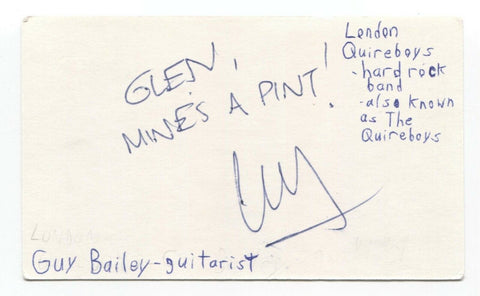 GLEN,
MINE'S A PINT!
Guy
London
Quireboys
-hard rock
band
-also known
as The
Quireboys
Guy Bailey-guitarist